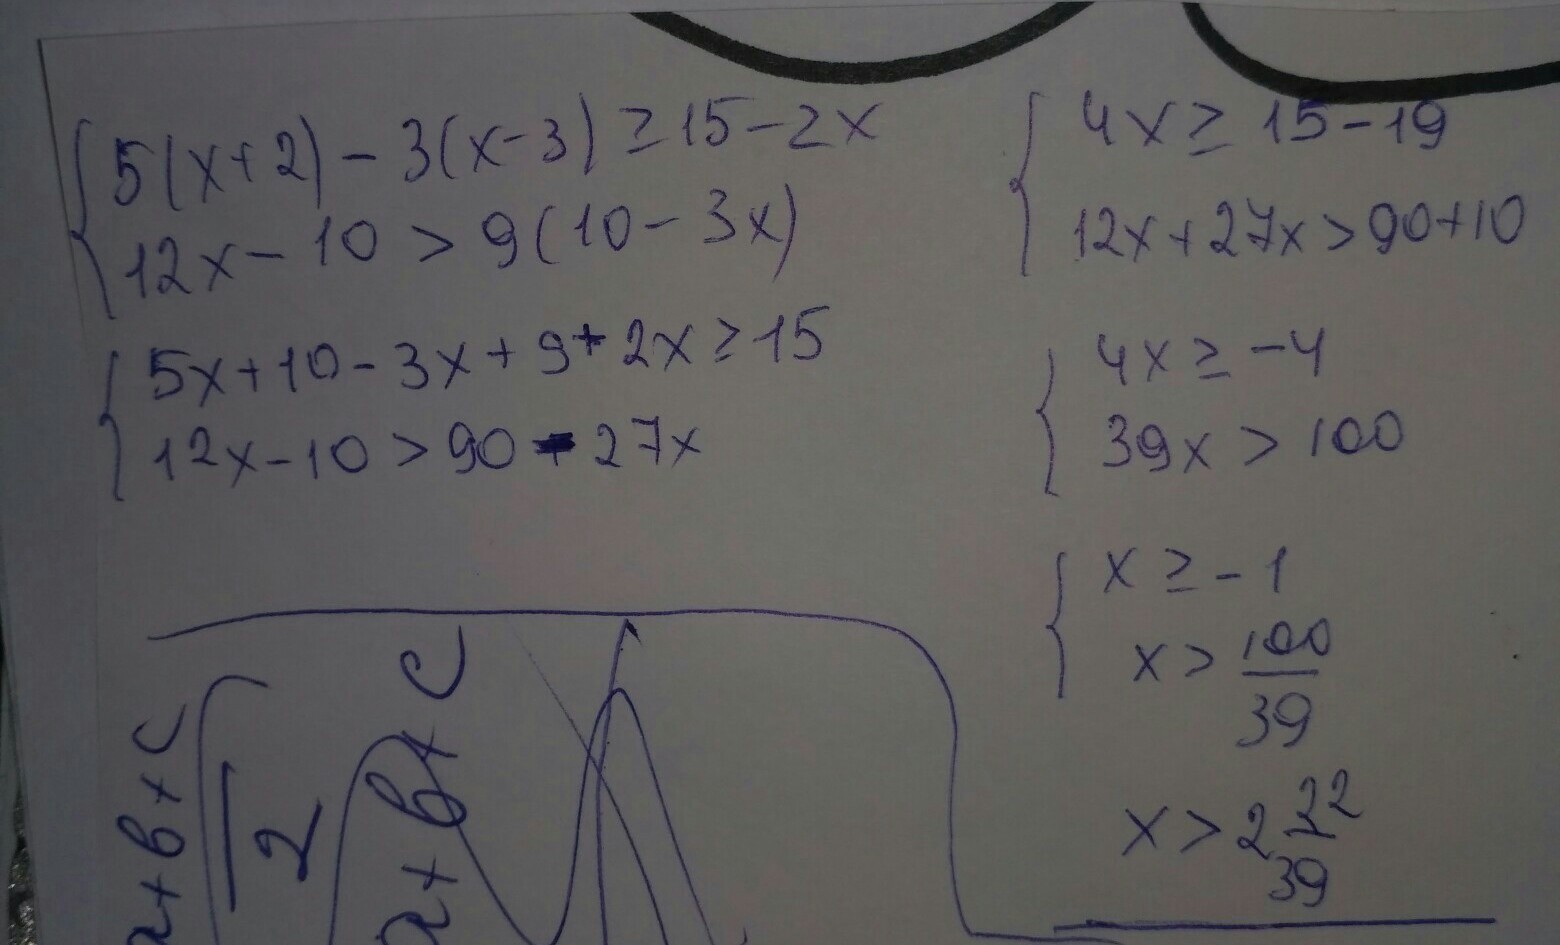 5(x+2) - 3(x-3) ≥ 15 - 2x
12x - 10 > 9(10 - 3x)
5x + 10 - 3x + 9 + 2x ≥ 15
12x - 10 > 90 - 27x
4x ≥ 15 - 19
12x + 27x > 90 + 10
4x ≥ -4
39x > 100
x ≥ -1
x > 100/39
x > 2 22/39
a+b+c
2
a+b+c